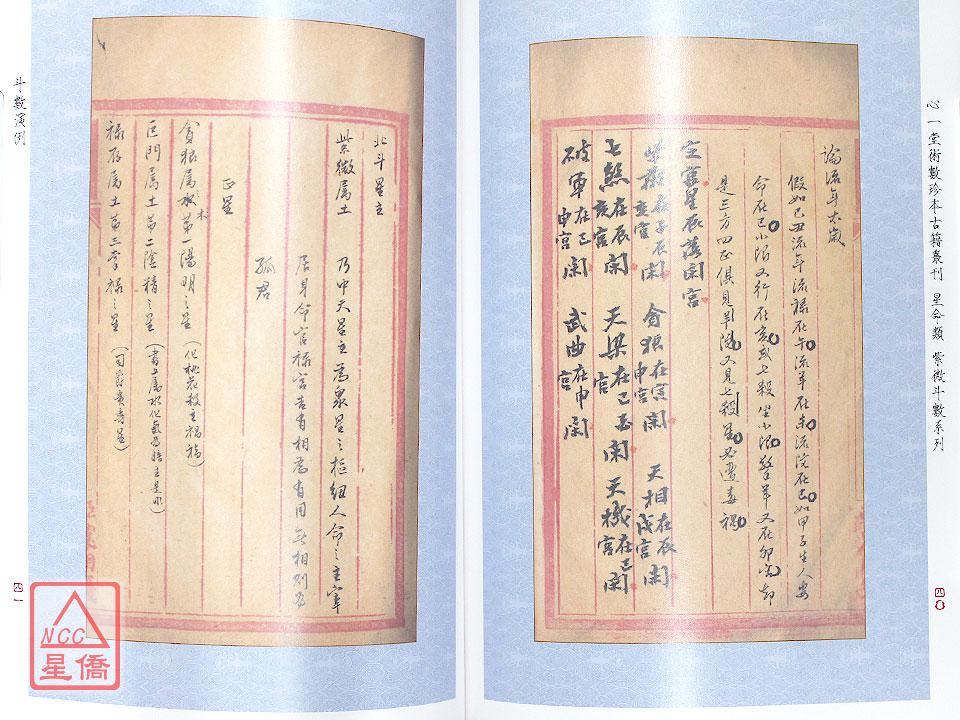 心一堂術數珍本古籍叢刊 星命類 紫微斗數系列
論流年太歲
假如己丑流年流祿在午流羊在未流陀在巳如甲子生人安
命在巳小限又行在亥或七殺坐小限擎羊又在卯
是三方四正俱見羊陀又見七殺星必遭毒禍
宮星辰落閑宮
紫微在子辰亥宮閑 貪狼在寅申宮閑 天相在辰戌宮閑
七煞在辰亥宮閑 天梁在巳酉宮閑 天機在巳宮閑
破軍在巳申宮閑 武曲在申宮閑
四〇
北斗星主
紫微属土 乃中天星主為衆星之樞紐人命之主宰
居身命官祿宮吉有相為有用無相則為
孤君
正星
貪狼属水木第一陽明之星(化桃花殺主禍福)
巨門属土第二陰精之星(書上属水化氣為暗主是非)
祿存属土第三貞祿之星(司爵貴壽星)
斗數演例
四一
NCC
星僑